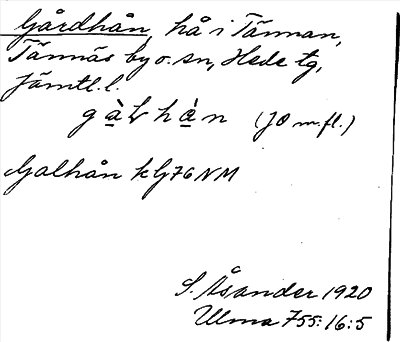 Gårdhån, hå i Tännan,
Tännäs by o. sn, Hede tg,
Jämtl. l.
(JO m.fl.)
Galhån k G76 NM
S. Åsander 1920
Ulma 755:16:5